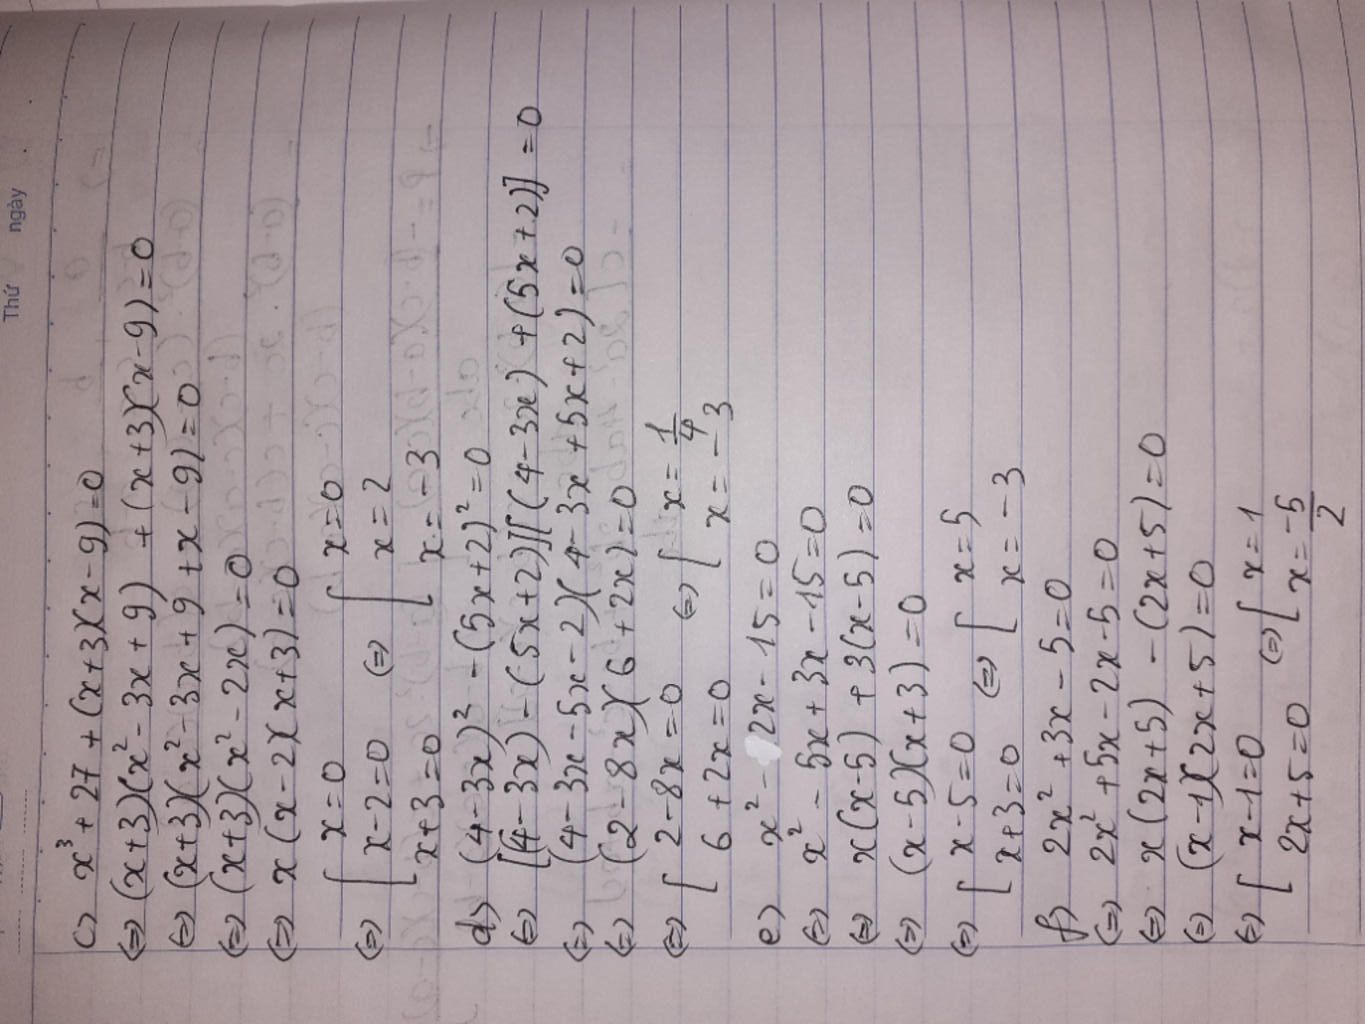 Thứ ngày
c) x³ + 27 + (x+3)(x-9) = 0
⇔ (x+3)(x² - 3x + 9) + (x+3)(x-9) = 0
⇔ (x+3)(x² - 3x + 9 + x - 9) = 0
⇔ (x+3)(x² - 2x) = 0
⇔ x(x-2)(x+3) = 0
⇔ [ x=0 x-2=0 x+3=0 ⇔ [ x=0 x=2 x=-3
d) (4-3x)² - (5x+2)² = 0
⇔ [(4-3x) - (5x+2)][(4-3x) + (5x+2)] = 0
⇔ (4-3x-5x-2)(4-3x+5x+2) = 0
⇔ (2-8x)(6+2x) = 0
⇔ [ 2-8x=0 6+2x=0 ⇔ [ x=1/4 x=-3
e) x² - 2x - 15 = 0
⇔ x² - 5x + 3x - 15 = 0
⇔ x(x-5) + 3(x-5) = 0
⇔ (x-5)(x+3) = 0
⇔ [ x-5=0 x+3=0 ⇔ [ x=5 x=-3
f) 2x² + 3x - 5 = 0
⇔ 2x² + 5x - 2x - 5 = 0
⇔ x(2x+5) - (2x+5) = 0
⇔ (x-1)(2x+5) = 0
⇔ [ x-1=0 2x+5=0 ⇔ [ x=1 x=-5/2